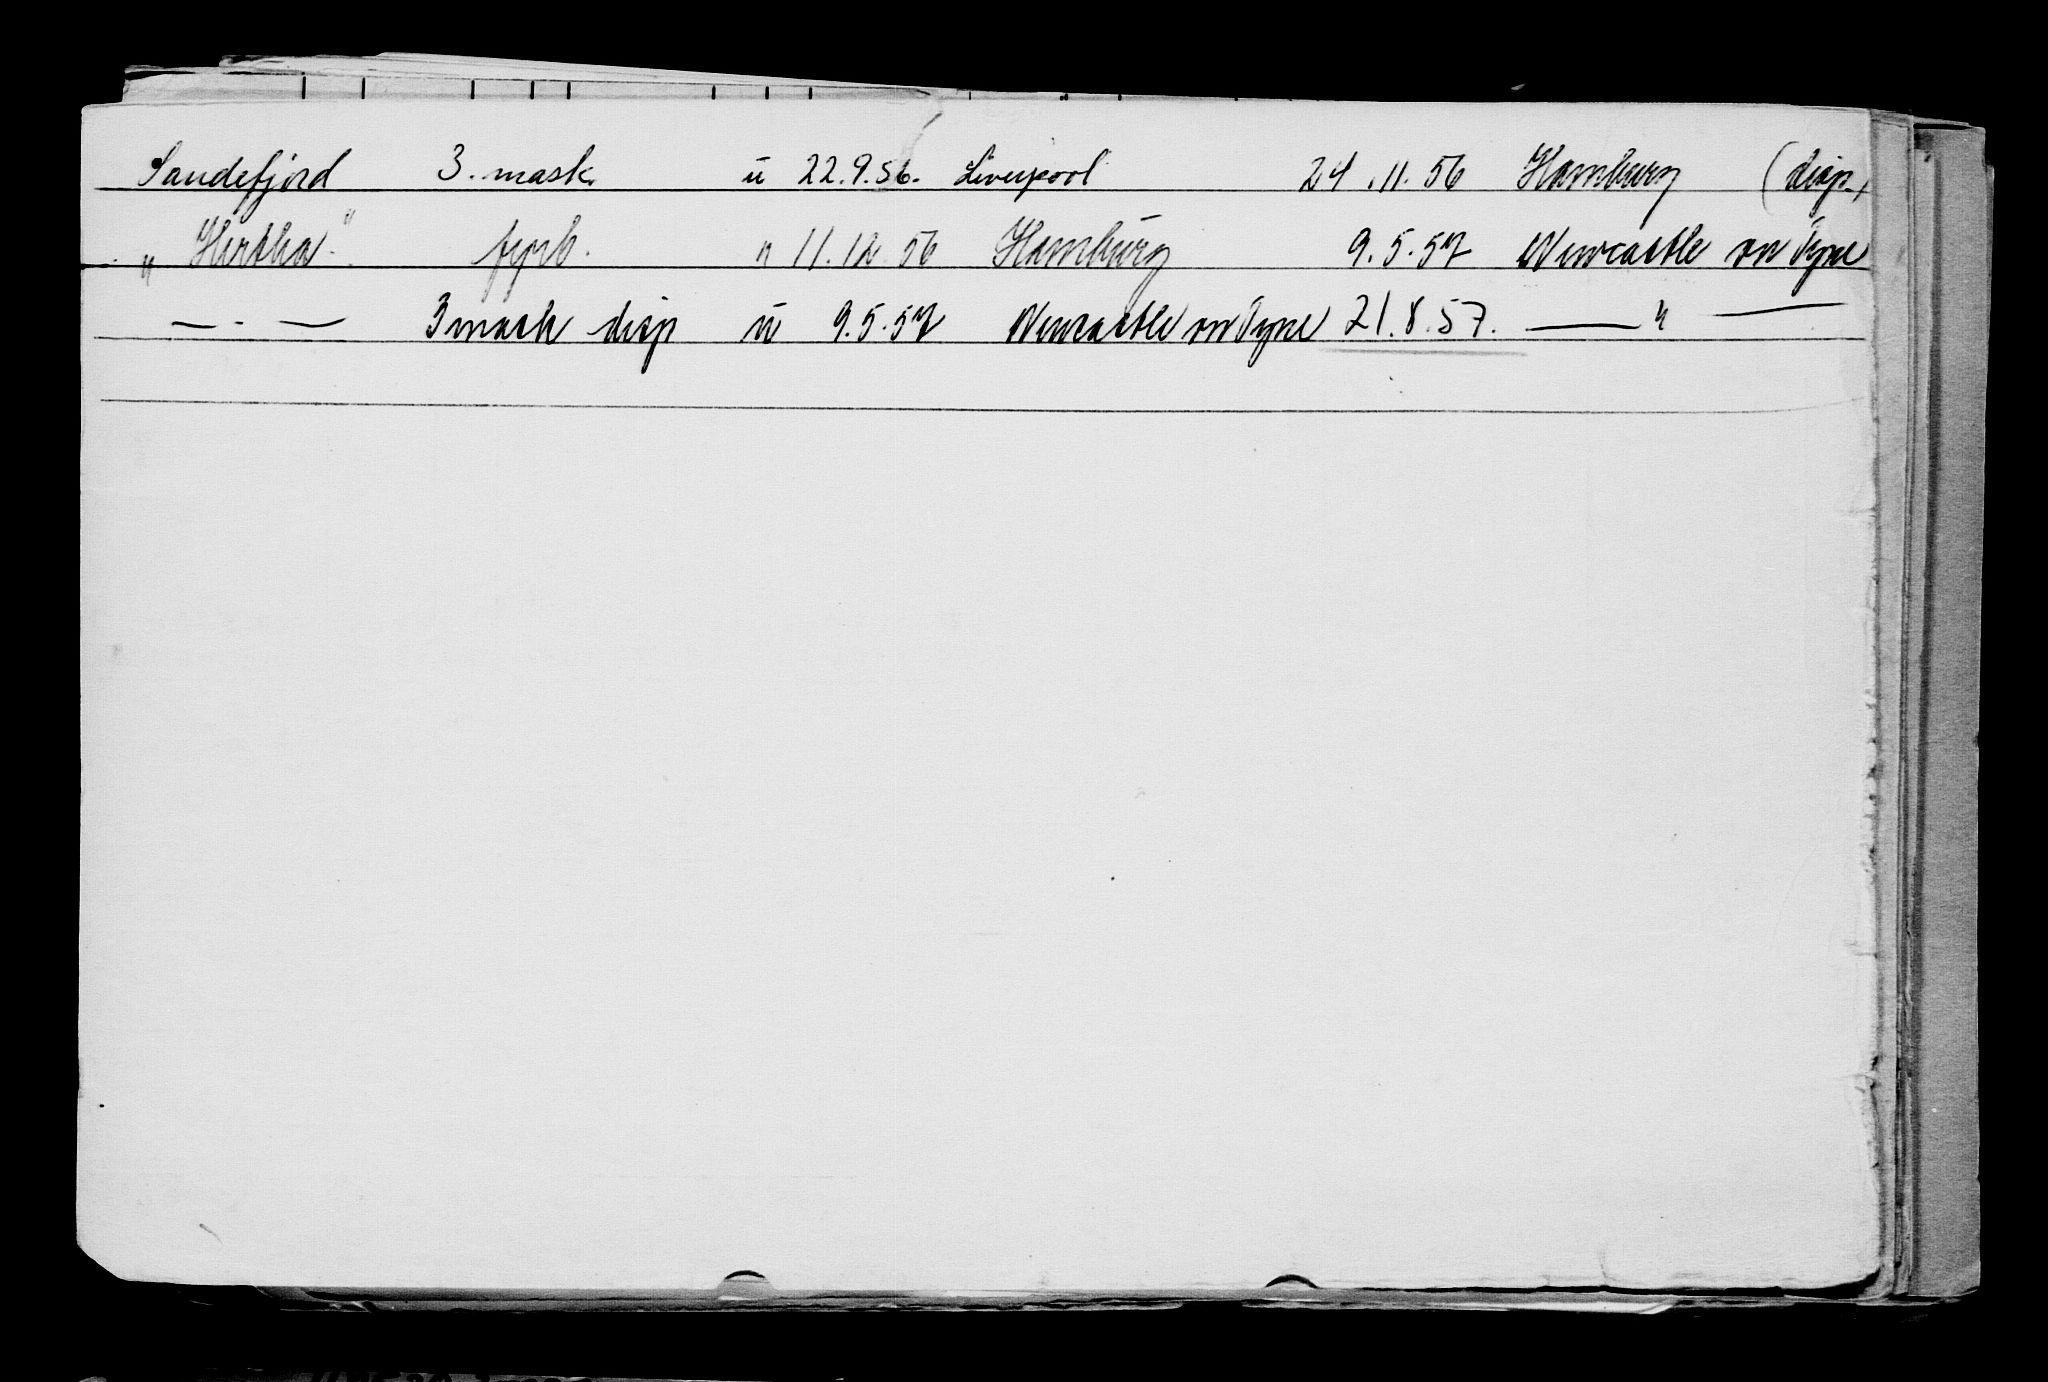 Sandefjord 3. mask. u 22.9.56. Liverpool 24.11.56 Hamburg (disp.)
„Hertha" fyrb. u 11.12.56 Hamburg 9.5.57 Newcastle on Tyne
— · — 3 mask disp u 9.5.57 Newcastle on Tyne 21.8.57. — " —